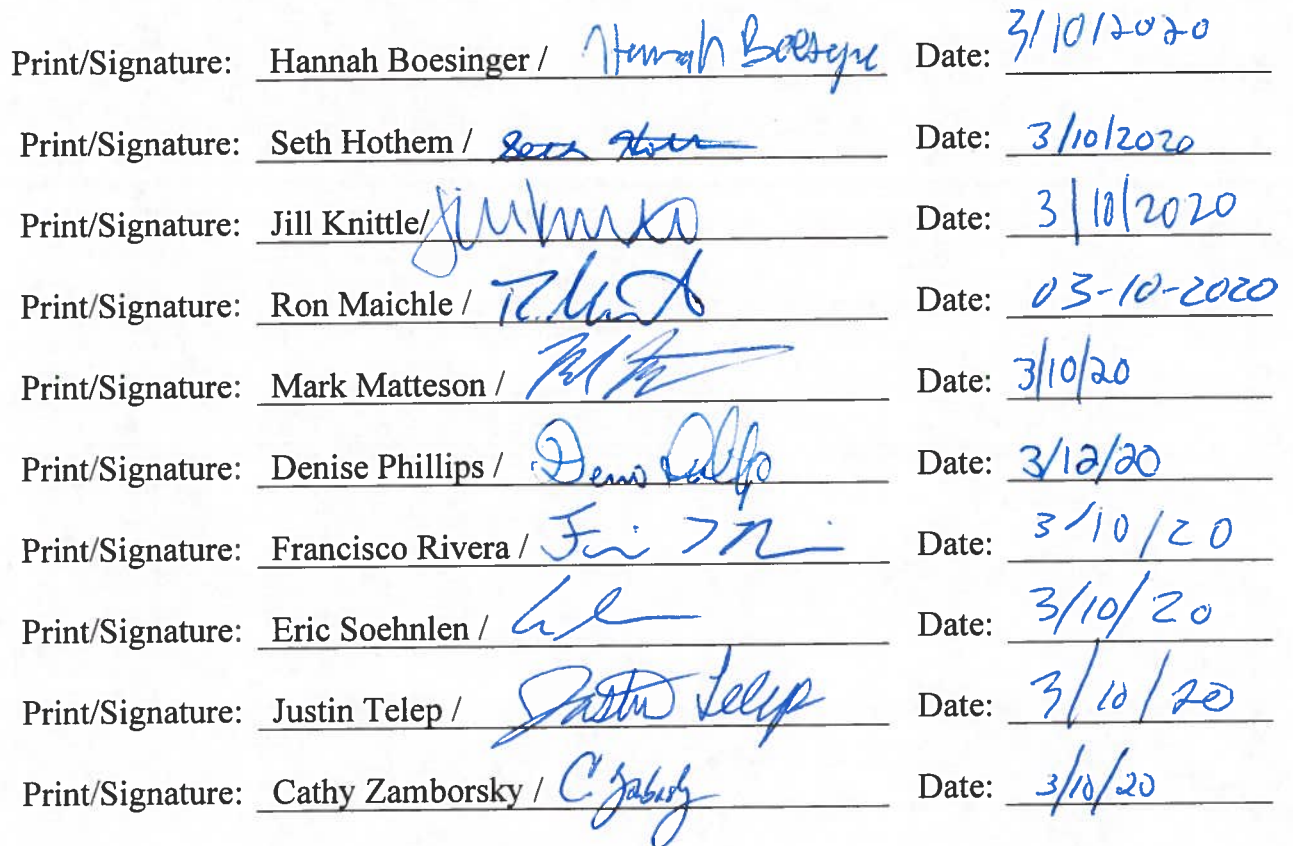 Print/Signature: Hannah Boesinger / Hannah Boesinger Date: 3/10/2020
Print/Signature: Seth Hothem / Seth Date: 3/10/2020
Print/Signature: Jill Knittle/ Date: 3/10/2020
Print/Signature: Ron Maichle / Date: 03-10-2020
Print/Signature: Mark Matteson / Date: 3/10/20
Print/Signature: Denise Phillips / Date: 3/12/20
Print/Signature: Francisco Rivera / Date: 3/10/20
Print/Signature: Eric Soehnlen / Date: 3/10/20
Print/Signature: Justin Telep / Justin Telep Date: 3/10/20
Print/Signature: Cathy Zamborsky / C Date: 3/10/20